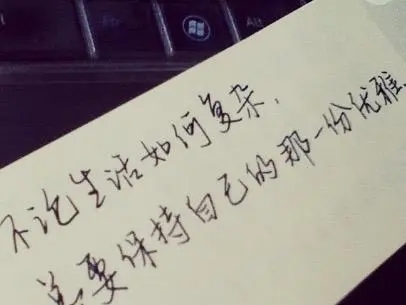 Alt
不论生活如何复杂，
总要保持自己的那一份优雅.